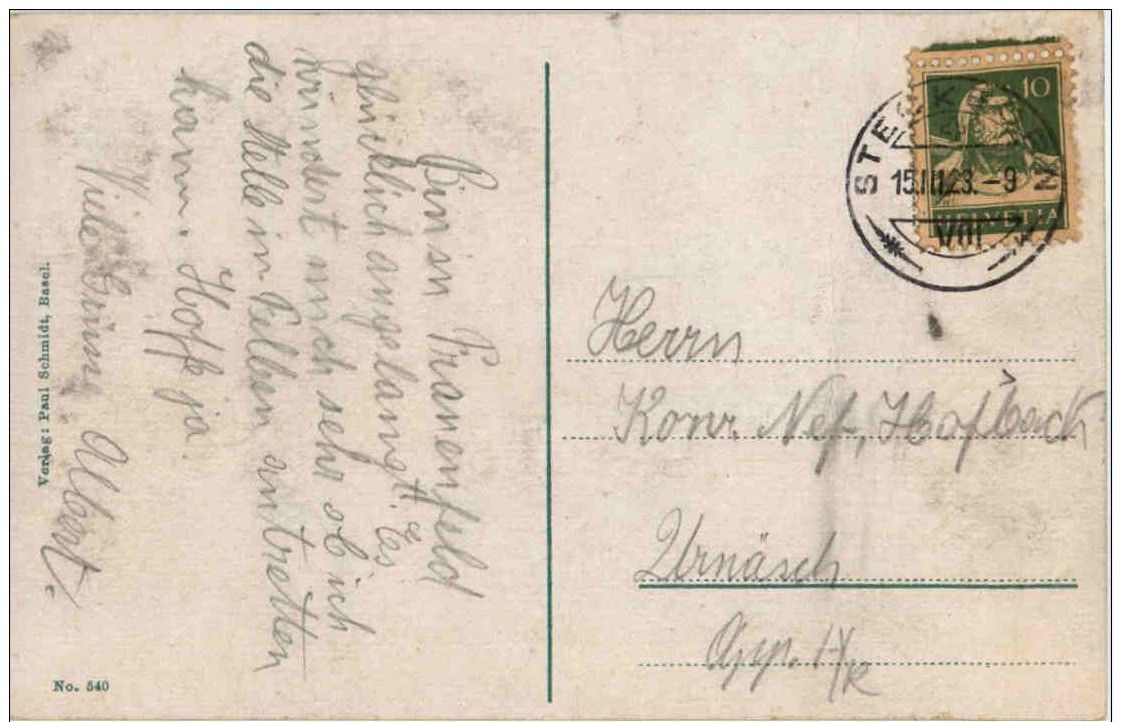 Bin in Frauenfeld
glücklich angelangt. Es
wundert mich sehr ob ich
die Stelle in Felben antretten
kann. Hoff ja
Viele Grüsse Albert.
Verlag: Paul Schmidt, Basel.
No. 540
10
HELVETIA
STECKBORN
15.III.23.-9
VIII
Herrn
Konr. Nef, Hofbeck
Urnäsch
App. A/R